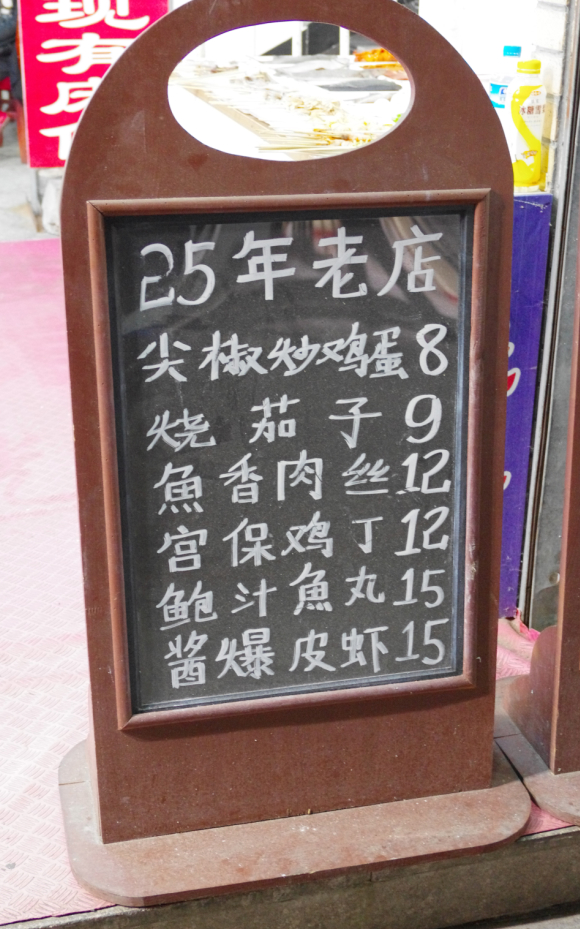 现有皮
25年老店
尖椒炒鸡蛋8
烧茄子9
魚香肉丝12
宫保鸡丁12
鲍汁魚丸15
酱爆皮虾15